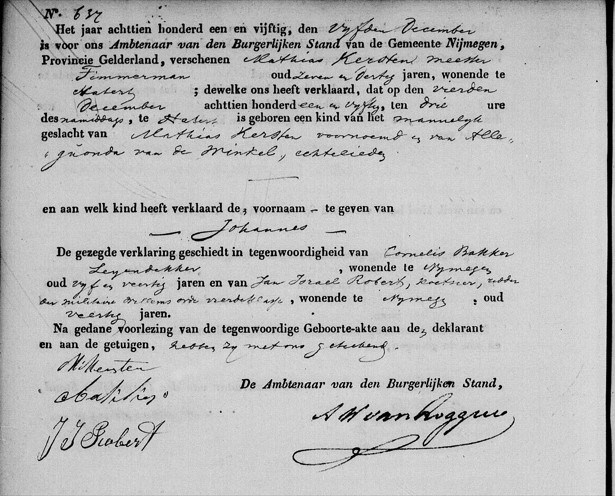 N°. 637
Het jaar achttien honderd een en vijftig, den vyfden December
is voor ons Ambtenaar van den Burgerlijken Stand van de Gemeente Nijmegen,
Provincie Gelderland, verschenen Mathias Kersten meester
Timmerman oud zeven en dertig jaren, wonende te
Hatert ; dewelke ons heeft verklaard, dat op den vierden
December achttien honderd een en vyftig, ten drie ure
des namiddags, te Hatert is geboren een kind van het mannelyk
geslacht van Mathias Kersten voornoemd en van Alle-
gonda van de Winkel, echtelieden
en aan welk kind heeft verklaard de, voornaam – te geven van
Johannes
De gezegde verklaring geschiedt in tegenwoordigheid van Cornelis Bakker
Leyendekker , wonende te Nymegen
oud vyf en veertig jaren en van Jan Israel Robert, koetsier, ridder
der militaire orde vierde klasse, wonende te Nymegen, oud
veertig jaren.
Na gedane voorlezing van de tegenwoordige Geboorte-akte aan de, deklarant
en aan de getuigen, hebben zy met ons geteekend.
De Ambtenaar van den Burgerlijken Stand,
J J Robert